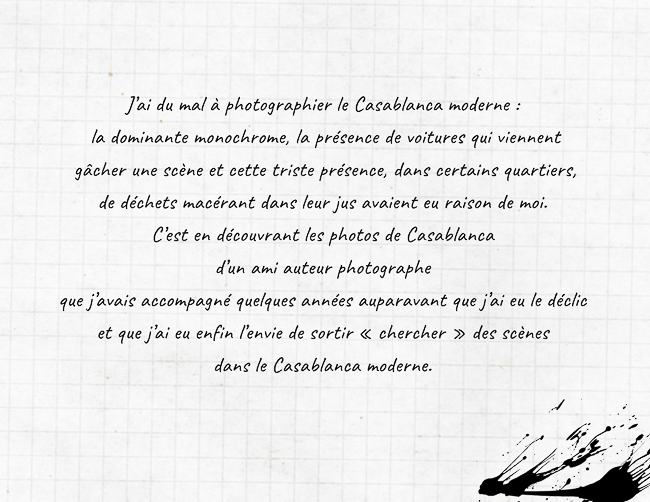 J'ai du mal à photographier le Casablanca moderne :
la dominante monochrome, la présence de voitures qui viennent
gâcher une scène et cette triste présence, dans certains quartiers,
de déchets macérant dans leur jus avaient eu raison de moi.
C'est en découvrant les photos de Casablanca
d'un ami auteur photographe
que j'avais accompagné quelques années auparavant que j'ai eu le déclic
et que j'ai eu enfin l'envie de sortir « chercher » des scènes
dans le Casablanca moderne.